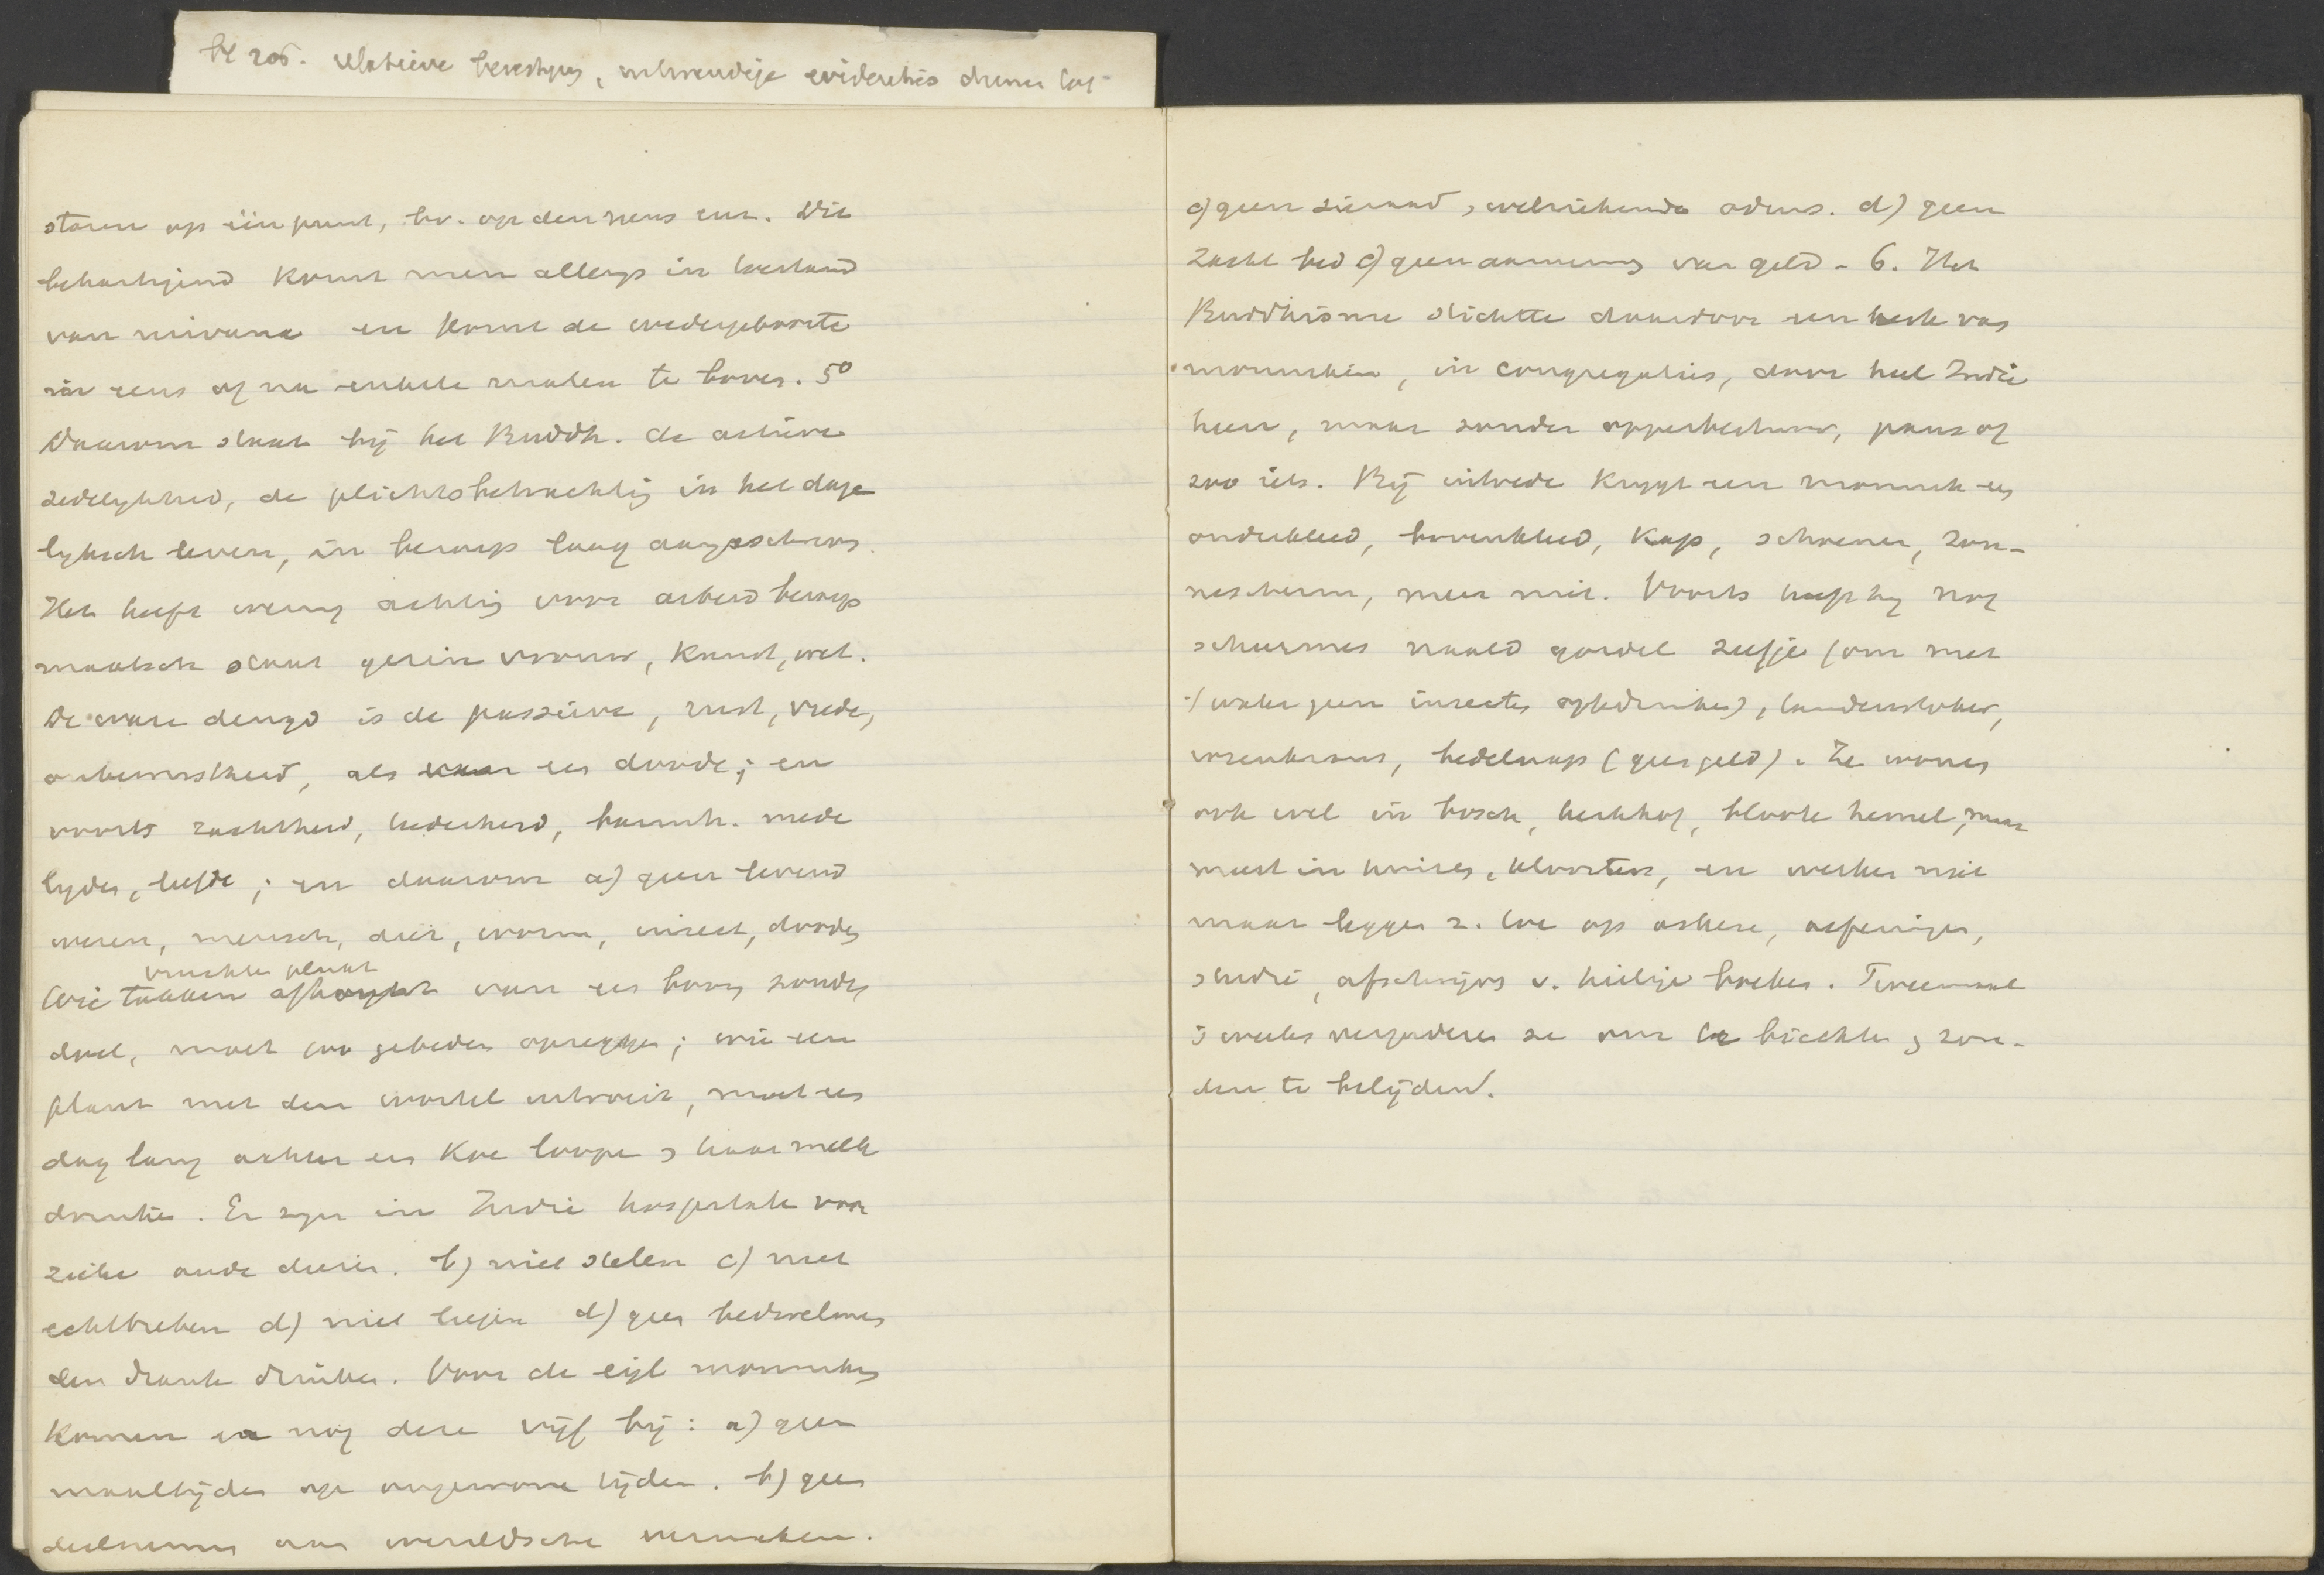 bl 205. relatieve
staren op één punt, bv. op den neus enz. Dit
behartigend komt men allengs in toestand
van nirvana en komt de wedergeboorte
in eens of na enkele malen te boven. 5º
Daarom staat bij het Buddh. de actieve
zedelykheid, de plichtsbetrachting in het dage
lyksch leven, in beroep laag aangeschreven.
Het heeft weinig achting voor arbeid beroep
maatsch staat gezin vrouw, kunst, wet.
De ware deugd is de passieve, rust, vrede,
onbewustheid, als waar een doode; en
voorts zachtheid, teederheid, barmh. mede
lyden, liefde; en daarom a) geen levend
wezen, mensch, dier, worm, insect, dooden
vruchten plukt
Wie takken afkapt van een boom zonder
doel, moet 100 gebeden opzeggen; wie een
plant met den wortel uitroeit, moet een
dag lang achter een koe loopen & haar melk
drinken. Er zyn in Indië hospitalen voor
zieke oude dieren. b) niet stelen c) niet
echtbreken d) niet liegen d) geen bedwelmen
den drank drinken. Voor de eigl monniken
komen er nog deze vijf bij: a) geen
maaltijden op ongewone tijden. b) geen
deelnemen aan wereldsche vermaken.
c) geen sieraad, welriekende odeurs. d) geen
zacht bed e) geen aanneming van geld - 6. Het
Buddhisme stichtte daardoor een kerk van
monniken, in congregaties, door heel Indië
heen, maar zonder opperbestuur, paus of
zoo iets. Bij intrede krygt een monnik een
onderkleed, bovenkleed, kap, schoenen, zon-
nescherm, meer niet. Voorts heeft hy nog
scheermes naald gordel zeefje (om met
't water geen insecten op te drinken), tandenstoker,
rozenkrans, bedelnap (geen geld). Ze wonen
ook wel in bosch, kerkhof, bloote hemel, maar
meest in huizen, kloosters, en werken niet
maar leggen z. toe op ascese, oefeningen,
studie, afschrijven v. heilige boeken. Tweemaal
's weeks vergaderen ze om te biechten & zon-
den te belijden.